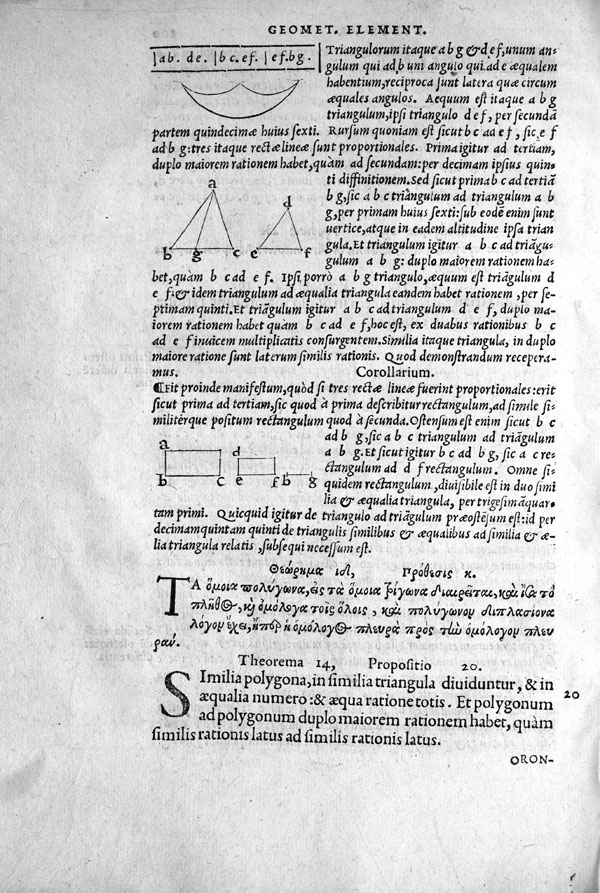 GEOMET. ELEMENT.
|ab. de. |bc. ef. |ef. bg.|
Triangulorum itaque a b g & d e f, unum an-
gulum qui ad b uni angulo qui ad e æqualem
habentium, reciproca sunt latera quæ circum
æquales angulos. Aequum est itaque a b g
triangulum, ipsi triangulo d e f, per secundã
partem quindecimæ huius sexti. Rursum quoniam est sicut b c ad e f, sic e f
ad b g: tres itaque rectæ lineæ sunt proportionales. Prima igitur ad tertiam,
duplo maiorem rationem habet, quàm ad secundam: per decimam ipsius quin-
ti diffinitionem. Sed sicut prima b c ad tertiã
b g, sic a b c triangulum ad triangulum a b
g, per primam huius sexti: sub eodē enim sunt
uertice, atque in eadem altitudine ipsa trian
gula. Et triangulum igitur a b c ad triãgu-
gulum a b g: duplo maiorem rationem ha-
bet, quàm b c ad e f. Ipsi porrò a b g triangulo, æquum est triãgulum d
e f: & idem triangulum ad æqualia triangula eandem habet rationem, per se-
ptimam quinti. Et triãgulum igitur a b c ad triangulum d e f, duplo ma-
iorem rationem habet quàm b c ad e f, hoc est, ex duabus rationibus b c
ad e f inuicem multiplicatis consurgentem. Similia itaque triangula, in duplo
maiore ratione sunt laterum similis rationis. Quod demonstrandum recepera-
mus. Corollarium.
¶Est proinde manifestum, quòd si tres rectæ lineæ fuerint proportionales: erit
sicut prima ad tertiam, sic quod à prima describitur rectangulum, ad simile si-
militérque positum rectangulum quod à secunda. Ostensum est enim sicut b c
ad b g, sic a b c triangulum ad triãgulum
a b g. Et sicut igitur b c ad b g, sic a c re-
ctangulum ad d f rectangulum. Omne si-
quidem rectangulum, diuisibile est in duo simi
lia & æqualia triangula, per trigesimãquar-
tam primi. Quicquid igitur de triangulo ad triãgulum præostēsum est: id per
decimamquintam quinti de triangulis similibus & æqualibus ad similia & æ-
lia triangula relatis, subsequi necessum est.
a d b g c e f
a d b c e f b g
Θεώρημα ιδ, Πρόθεσις κ.
ΤΑ ὅμοια πολύγωνα, εἰς τὰ ὅμοια τρίγωνα διαιρεῖται, καὶ εἰς τὸ
πλῆθος, κỳ ὁμόλογα τοῖς ὅλοις, καὶ πολύγωνον διπλασίονα
λόγον ἔχει, ἤπερ ἡ ὁμόλογος πλευρὰ πρὸς τὴν ὁμόλογον πλευ
ράν.
Theorema 14, Propositio 20.
Similia polygona, in similia triangula diuiduntur, & in
æqualia numero: & æqua ratione totis. Et polygonum
20
ad polygonum duplo maiorem rationem habet, quàm
similis rationis latus ad similis rationis latus.
ORON-